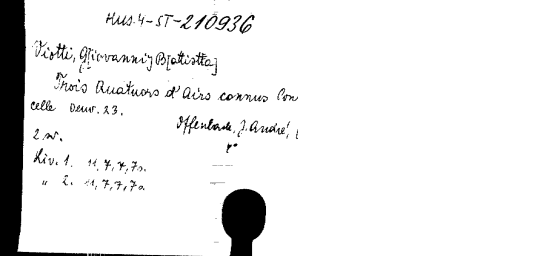 Mus. 4-ST-210936
Viotti, G[iovanni] B[attista]
Trois Quatuors d'Airs connus Con
celle Oeuv. 23.
Offenbach, J. André,
2 w.
Liv. 1. 11, 7, 7, 7 s.
" 2. 11, 7, 7, 7 s.